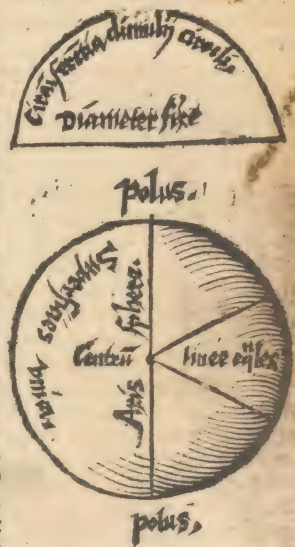 Circūferētia dimidij circuli.
Diameter fixꝰ
polus.
Superficies unica
sphere.
Centrū
linee eq̄les
Axis
polus.